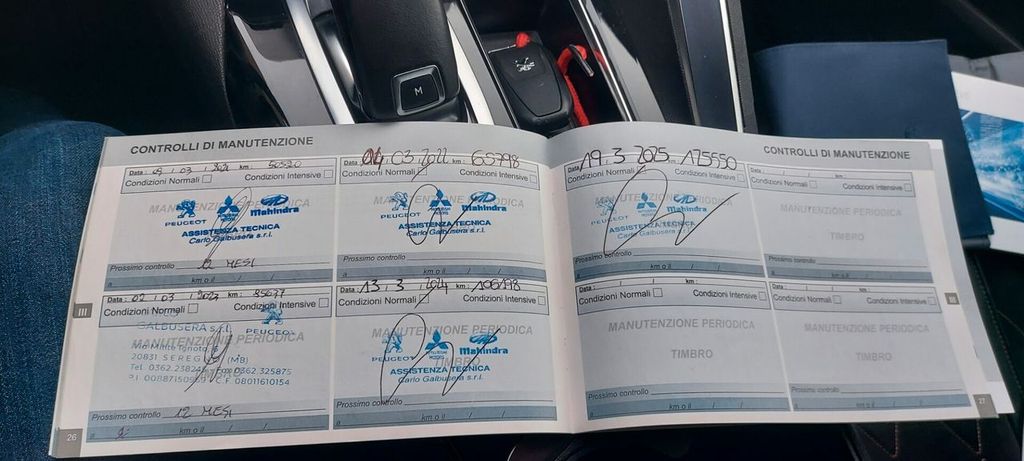 M
CONTROLLI DI MANUTENZIONE
Data : 09 / 03 / 2021 km : 50520
Condizioni Normali Condizioni Intensive
MANUTENZIONE PERIODICA
PEUGEOT Mahindra
ASSISTENZA TECNICA
Carlo Galbusera s.r.l.
Prossimo controllo 12 MESI
a km o il / /
Data : 04 03 2022 km : 65798
Condizioni Normali Condizioni Intensive
MANUTENZIONE PERIODICA
PEUGEOT Mahindra
ASSISTENZA TECNICA
Carlo Galbusera s.r.l.
Prossimo controllo
a km o il / /
Data : 02 / 03 / 2023 km : 85637
Condizioni Normali Condizioni Intensive
GALBUSERA s.r.l. PEUGEOT
MANUTENZIONE PERIODICA
20831 SEREGNO (MB)
Tel. 0362.238 Fax 0362.325875
C.F. 08011610154
Prossimo controllo 12 MESI
a km o il / /
Data : 13 . 3 . 2024 km : 106198
Condizioni Normali Condizioni Intensive
MANUTENZIONE PERIODICA
PEUGEOT MITSUBISHI MOTORS Mahindra
TIMBRO
ASSISTENZA TECNICA
Carlo Galbusera s.r.l.
Prossimo controllo
a km o il / /
III
26
CONTROLLI DI MANUTENZIONE
19 . 3 2025 175550
Condizioni Normali Condizioni Intensive
MANUTENZIONE PERIODICA
PEUGEOT Mahindra
ASSISTENZA TECNICA
Carlo Galbusera s.r.l.
Prossimo controllo
a km o il / /
Data : / / km :
Condizioni Normali Condizioni Intensive
MANUTENZIONE PERIODICA
TIMBRO
Prossimo controllo
a km o il / /
Data : / / km :
Condizioni Normali Condizioni Intensive
MANUTENZIONE PERIODICA
TIMBRO
Prossimo controllo
a km o il / /
Data : / / km :
Condizioni Normali Condizioni Intensive
MANUTENZIONE PERIODICA
TIMBRO
Prossimo controllo
a km o il / /
III
27